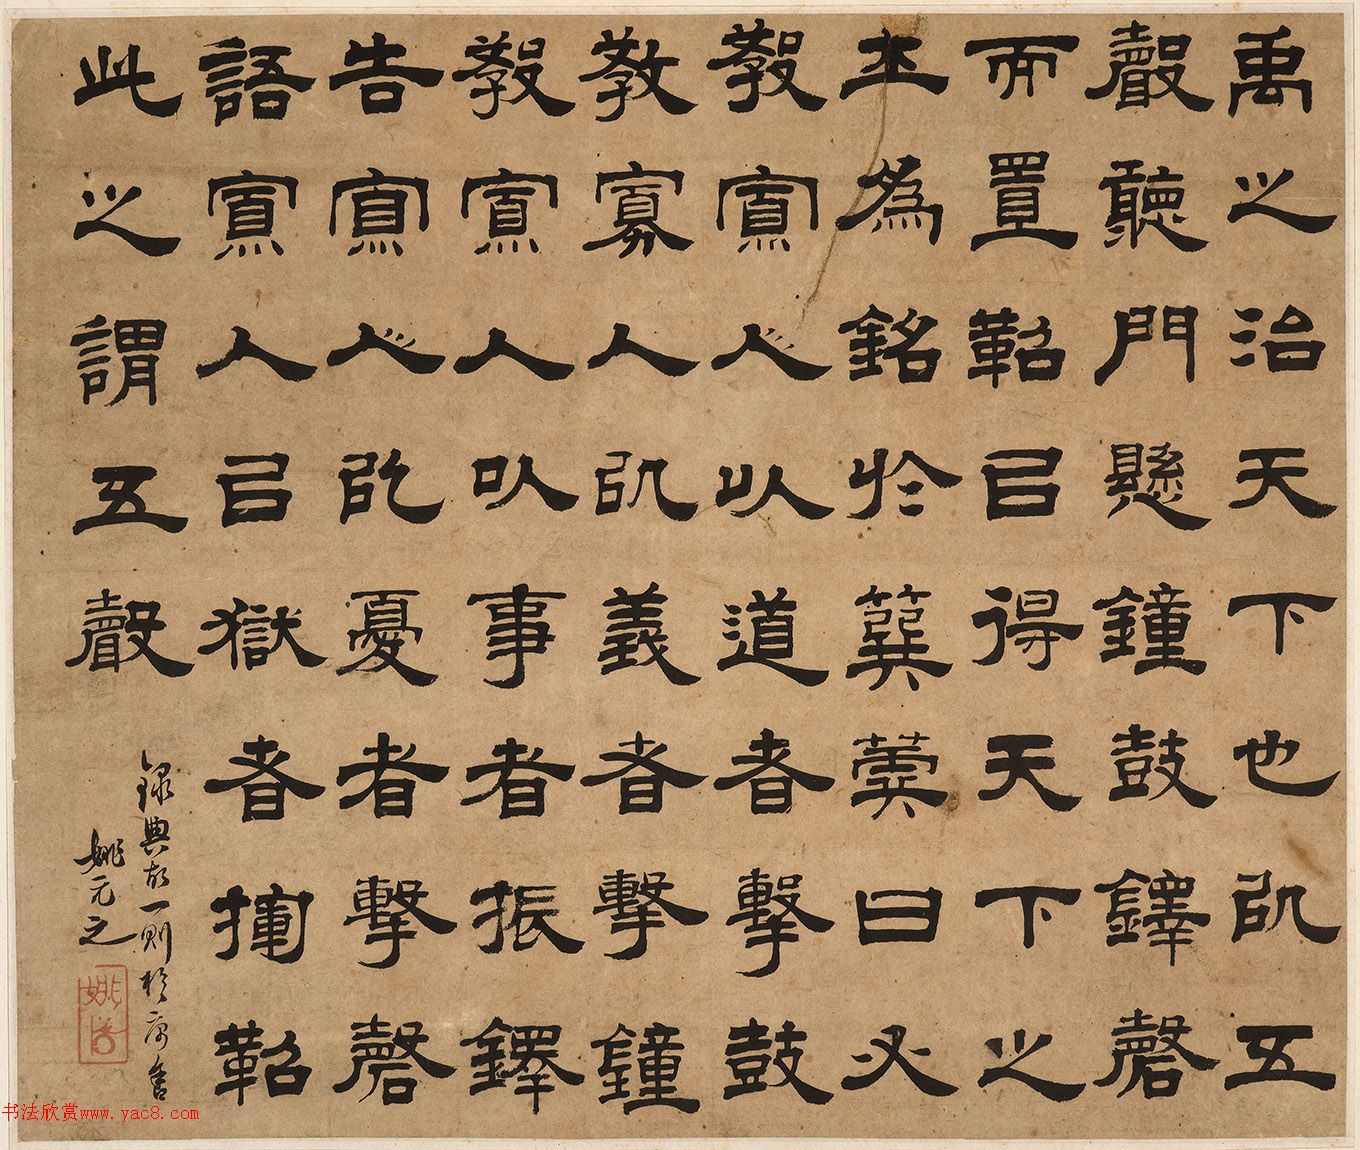 禹之治天下也㕥五
聲聽門懸鐘鼓鐸磬
而置鞀㠯得天下之
士為銘於簨簴曰必
教寡人以道者擊鼓
教寡人㕥義者擊鐘
教寡人以事者振鐸
告寡人㕥憂者擊磬
語寡人㠯獄者揮鞀
此之謂五聲
錄典故一則於寓舍
姚元之
书法欣赏www.yac8.com